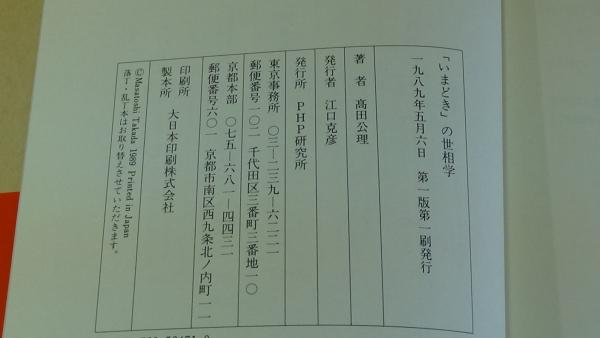 「いまどき」の世相学
一九八九年五月六日　第一版第一刷発行
著　者　髙田公理
発行者　江口克彦
発行所　PHP研究所
東京事務所　〇三―二三九―六二二一
郵便番号一〇二　千代田区三番町三番地一〇
京都本部　〇七五―六八一―四四三一
郵便番号六〇一　京都市南区西九条北ノ内町一一
印刷所
製本所　大日本印刷株式会社
©Masatoshi Takada 1989 Printed in Japan
落丁・乱丁本はお取り替えさせていただきます。